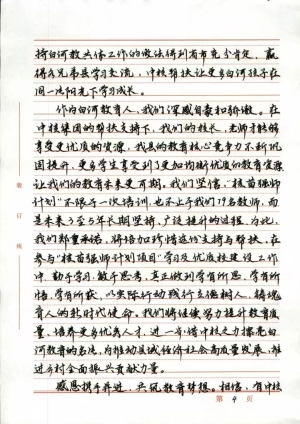 持白河教共体工作的做法得到省市充分肯定，赢
得各兄弟县学习交流，中核帮扶让更多白河孩子在
同一片阳光下学习成长。
作为白河教育人，我们深感自豪和骄傲。在
中核集团的帮扶支持下，我们的校长、老师才能够
享受更优质的资源，我县的教育核心竞争力不断巩
固提升，更多学生享受到了更加均衡优质的教育资源
让我们的教育未来更可期。我们坚信，“核苗强师
计划”不限于一次培训，也不止于我们79名教师，而
是未来3至5年长期坚持，广泛提升的过程。为此，
我们郑重承诺，将倍加珍惜这份支持与帮扶，在
参与“核苗强师计划项目”学习及优质校建设工作
中，勤于学习，敏于思考，真正做到学有所思，学有所
悟，学有所获，以实际行动践行立德树人，铸魂
育人的新时代使命。我们将继续努力提升教育质
量，培养更多优秀人才，进一步借中核之力擦亮白
河教育的名片，为推动县域经济社会高质量发展，推
进乡村全面振兴贡献力量。
感恩携手并进，共筑教育梦想。相信，有中核
装
订
线
第 4 页